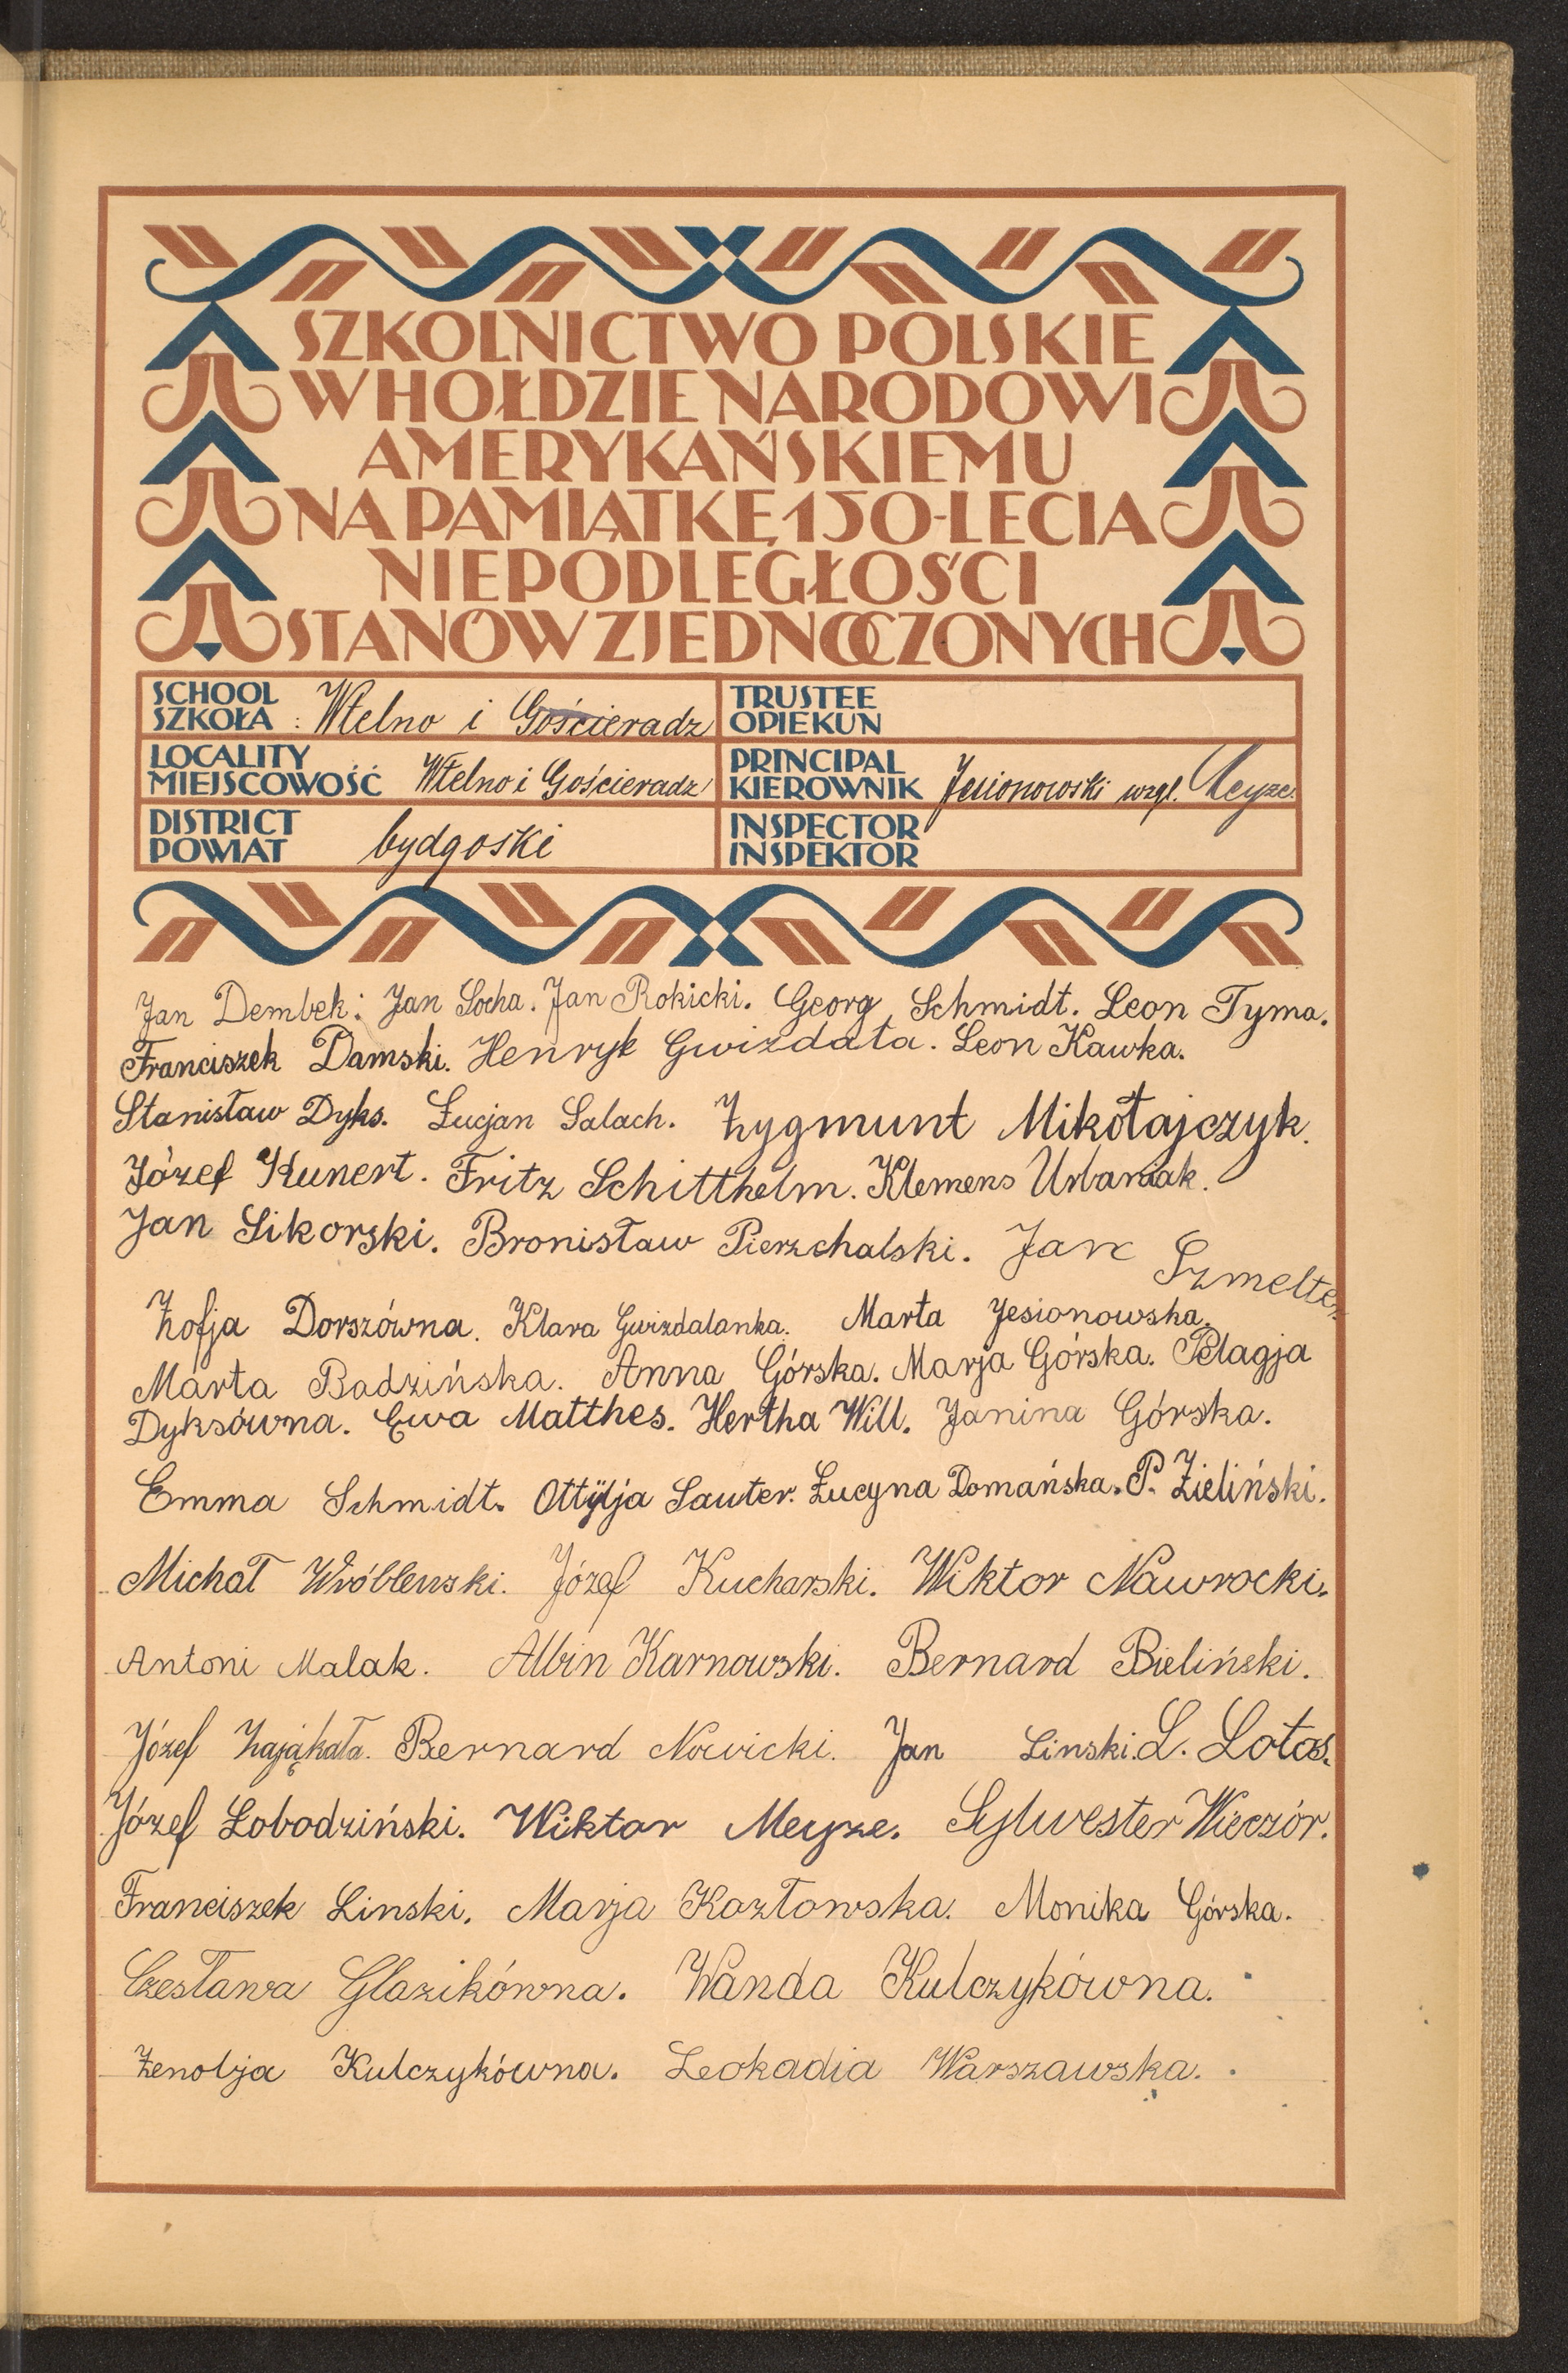 SZKOLNICTWO POLSKIE
W HOŁDZIE NARODOWI
AMERYKAŃSKIEMU
NA PAMIĄTKĘ 150-LECIA
NIEPODLEGŁOŚCI
STANÓW ZJEDNOCZONYCH
SCHOOL
SZKOŁA : Wtelno i Gościeradz
TRUSTEE
OPIEKUN
LOCALITY
MIEJSCOWOŚĆ Wtelno i Gościeradz
PRINCIPAL
KIEROWNIK Jesionowski wzgl. Meyze.
DISTRICT
POWIAT bydgoski
INSPECTOR
INSPEKTOR
Jan Dembek. Jan Socha. Jan Rokicki. Georg Schmidt. Leon Tyma.
Franciszek Damski. Henryk Gwizdała. Leon Kawka.
Stanisław Dyks. Łucjan Salach. Zygmunt Mikołajczyk.
Józef Kunert. Fritz Schitthelm. Klemens Urbaniak.
Jan Sikorski. Bronisław Pierzchalski. Jan Szmelter
Zofja Dorszówna. Klara Gwizdalanka. Marta Jesionowska.
Marta Badzińska. Anna Górska. Marja Górska. Pelagja
Dyksówna. Ewa Matthes. Hertha Will. Janina Górska.
Emma Schmidt. Ottylja Sauter. Łucyna Domańska. P. Zieliński.
Michał Wróblewski. Józef Kucharski. Wiktor Nawrocki.
Antoni Malak. Albin Karnowski. Bernard Bieliński.
Józef Zająkała. Bernard Nowicki. Jan Linski. L. Lotos.
Józef Łobodziński. Wiktor Meyze. Sylwester Wieczór.
Franciszek Linski. Marja Kozłowska. Monika Górska.
Czesława Glazikówna. Wanda Kulczykówna.
Zenobja Kulczykówna. Leokadia Warszawska.